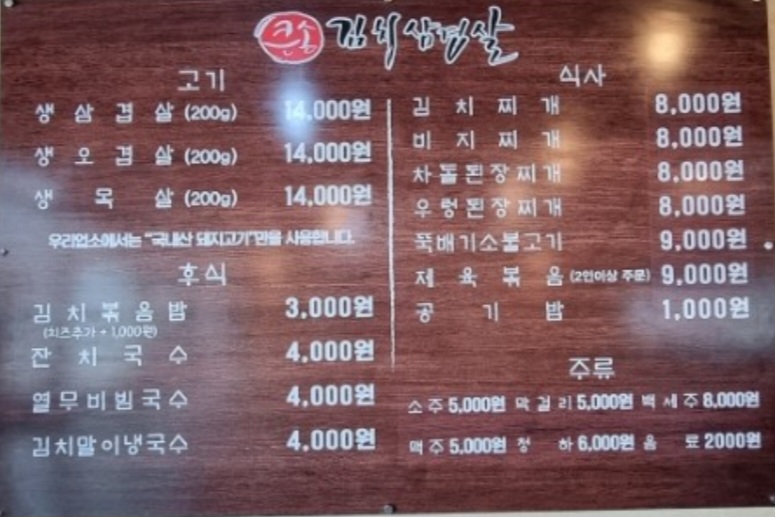 큰손 김치삼겹살
고기
생삼겹살 (200g) 14,000원
생오겹살 (200g) 14,000원
생목살 (200g) 14,000원
우리업소에서는 "국내산 돼지고기"만을 사용합니다.
후식
김치볶음밥 3,000원
(치즈추가 + 1,000원)
잔치국수 4,000원
열무비빔국수 4,000원
김치말이냉국수 4,000원
식사
김치찌개 8,000원
비지찌개 8,000원
차돌된장찌개 8,000원
우렁된장찌개 8,000원
뚝배기소불고기 9,000원
제육볶음 (2인이상 주문) 9,000원
공기밥 1,000원
주류
소주 5,000원 막걸리 5,000원 백세주 8,000원
맥주 5,000원 청하 6,000원 음료 2000원